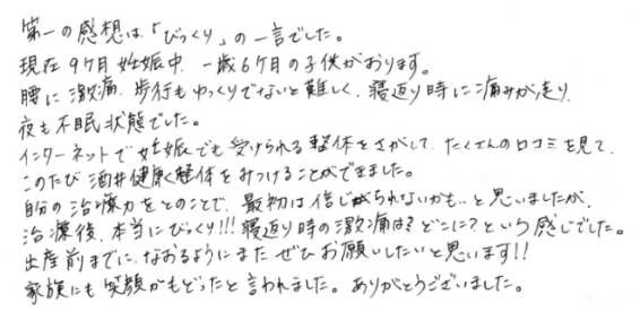 第一の感想は、「びっくり」の一言でした。
現在9ヶ月妊娠中、一歳6ヶ月の子供がおります。
腰に激痛、歩行もゆっくりでないと難しく、寝返り時に痛みが走り、
夜も不眠状態でした。
インターネットで妊娠でも受けられる整体をさがして、たくさんの口コミを見て、
このたび酒井健康整体をみつけることができました。
自分の治療力をとのことで、最初は信じがちれないかも‥と思いましたが、
治療後、本当にびっくり!!!寝返り時の激痛は?どこに?という感じでした。
出産前までに、なおるようにまた ぜひお願いしたいと思います!!
家族にも笑顔がもどったと言われました。ありがとうございました。